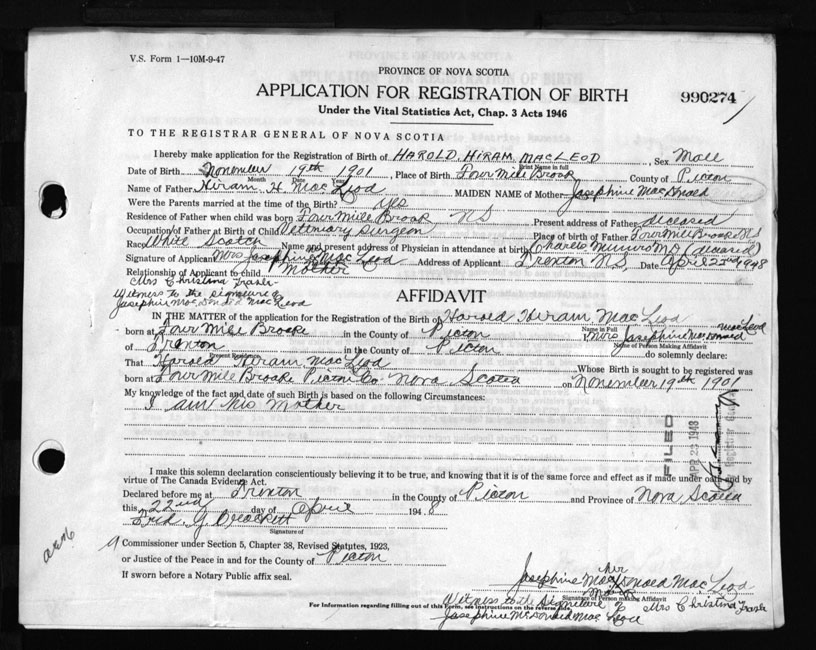 V.S. Form 1—10M-9-47
PROVINCE OF NOVA SCOTIA
APPLICATION FOR REGISTRATION OF BIRTH
990274
Under the Vital Statistics Act, Chap. 3 Acts 1946
TO THE REGISTRAR GENERAL OF NOVA SCOTIA
I hereby make application for the Registration of Birth of HAROLD HIRAM MACLEOD, Sex Male
Print Name in full
Date of Birth November 19th 1901, Place of Birth Four Mile Brook County of Pictou
Month Date Year
Name of Father Hiram H. MacLeod MAIDEN NAME of Mother Josephine MacDonald
Were the Parents married at the time of Birth? Yes
Residence of Father when child was born Four Mile Brook NS Present address of Father deceased
Occupation of Father at Birth of Child Place of birth of Father Four Mile Brook NS
Race White Scotch Name and present address of Physician in attendance at birth Charles Munro MD (diceased)
Signature of Applicant Mrs Josephine MacLeod Address of Applicant NS, Date April 22nd 1948
Relationship of Applicant to child Mother
Mrs Christina Fraser
Witness to the signature of
Josephine MacDonald MacLeod
AFFIDAVIT
IN THE MATTER of the application for the Registration of the Birth of Harold Hiram MacLeod
Name in Full
born at Four Mile Brooke in the County of Pictou I, Mrs Josephine MacDonald MacLeod
Name of Person Making Affidavit
of in the County of Pictou do solemnly declare:
Present Residence
That Harold Hiram MacLeod Whose Birth is sought to be registered was
born at Four Mile Brooke Pictou Co. Nova Scotia on November 19th 1901
My knowledge of the fact and date of such Birth is based on the following Circumstances:
I am his Mother
FILED
APR 23 1948
Registrar General
I make this solemn declaration conscientiously believing it to be true, and knowing that it is of the same force and effect as if made under oath and by
virtue of The Canada Evidence Act.
Declared before me at in the County of Pictou and Province of Nova Scotia
this 22nd day of April 1948
Signature of
A Commissioner under Section 5, Chapter 38, Revised Statutes, 1923,
or Justice of the Peace in and for the County of Pictou
If sworn before a Notary Public affix seal.
her
Josephine MacDonald MacLeod
Mark
Signature of Person making Affidavit
For information regarding filling out of this Form, see instructions on the reverse side.
Witness to the Signature of Mrs Christina Fraser
Josephine McDonald MacLeod